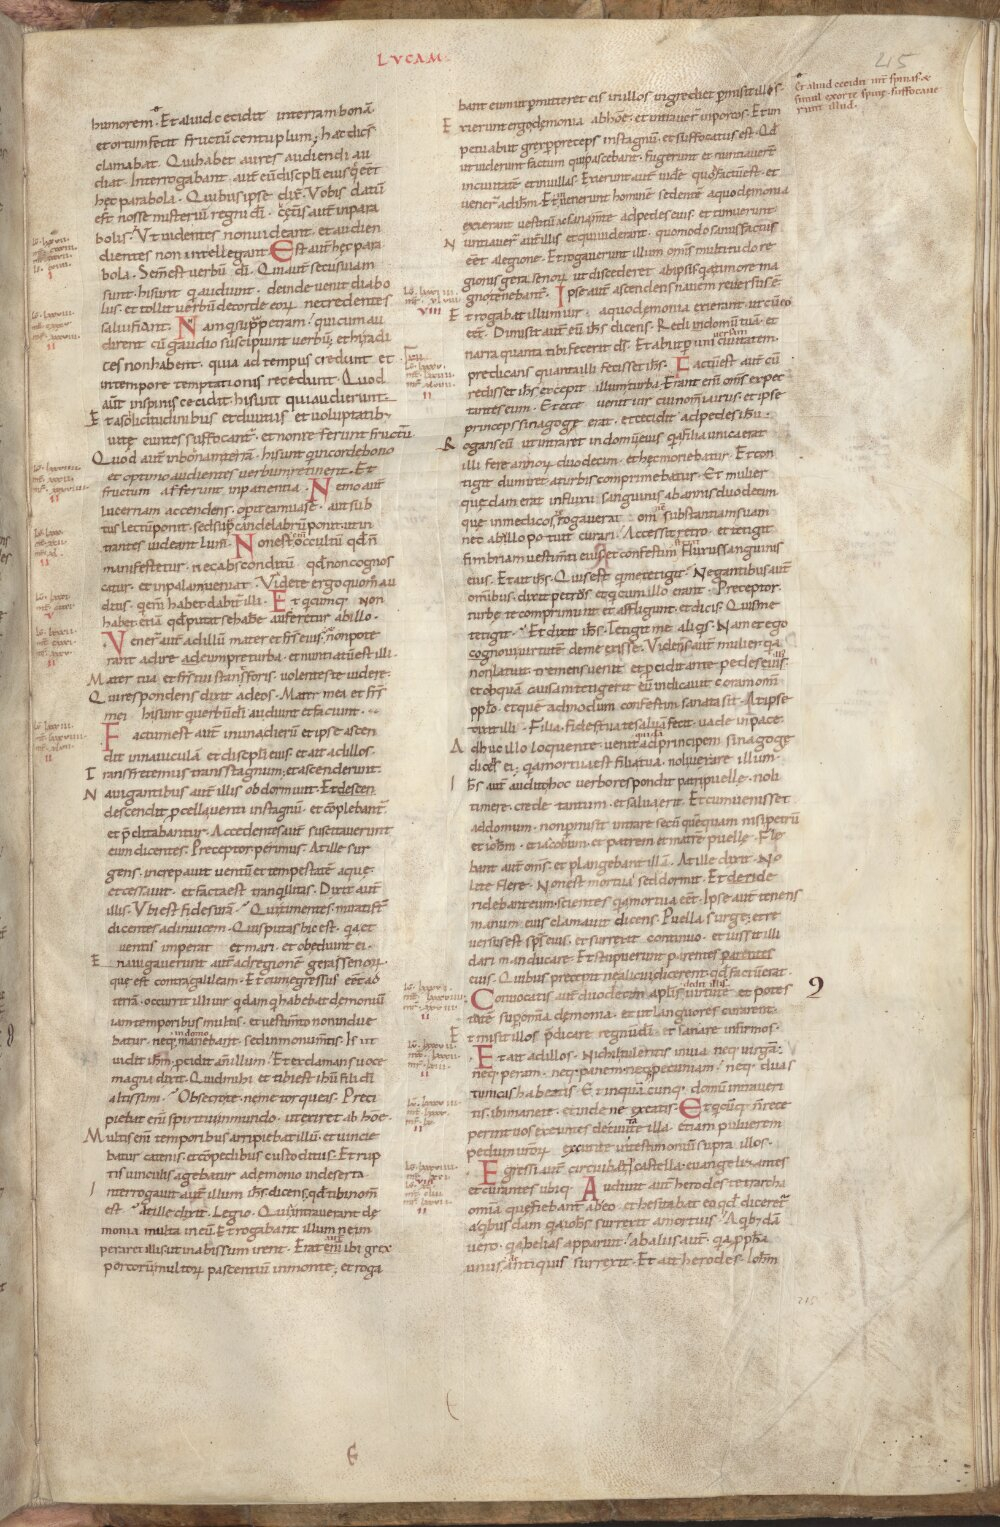 LVCAM
215
Et aliud cecidit int̄ spinas &
simul exorte spinę suffocaue
runt illud.
humorem. Et aliud cecidit interram bonā
et ortum fecit fructū centuplum; hæc dicēs
clamabat. Qui habet aures audiendi au
diat. Interrogabant aut̄ eū discipłi eius quę eēt
hęc parabola. Quibus ipse dix̄. Vobis datū
est nosse misteriū regni dī. cęteris aut̄ in para
bolis. Vt uidentes non uideant. et audien
dientes non intellegant. Est aut̄ hęc para
bola. Sem̄ est uerbū dī. Qui aut̄ secus uiam
sunt. hi sunt qui audiunt. deinde uenit diabo
lus. et tollit uerbū de corde eoꝝ ne credentes
salui fiant. Nam qui suꝑ petram. qui cum au
dierint cū gaudio suscipiunt uerbū. et hi radi
ces non habent. quia ad tempus credunt et
in tempore temptationis recedunt. Quod
aūt in spinis cecidit. hi sunt qui audierunt.
Et a sollicitudinibus et diuitiis et uoluptatib;
uitę euntes suffocant̄. et non referunt fructū.
Quod aut̄ in bonam terrā. hi sunt qui in corde bono
et optimo audientes uerbum retinent. Et
fructum afferunt in patientia. Nemo aut̄
lucernam accendens. operit eam uase. aut sub
tus lectū ponit. sed supra candelabrū ponit. ut in
trantes uideant lum̄. Non est enī occultū qđ n̄
manifestetur. nec absconditū qđ non cognos
catur. et in palam ueniat. Videte ergo quom̄ au
ditis. qui enī habet dabit̄ illi. Et quicumq; non
habet. etiā qđ putat se habere auferetur ab illo.
Vener̄ aut̄ ad illū mater et frs̄ eius. et non pote
rant adire ad eum pre turba. et nuntiatū est illi.
Mater tua et frs̄ tui stant foris. uolentes te uidere.
Qui respondens dixit ad eos. Mater mei et frs̄
mei hi sunt qui uerbū dī audiunt et faciunt.
Factum est aut̄ in una dierū et ipse ascen
dit in nauiculā et discipłi eius. et ait ad illos.
Transfretemus trans stagnum. et ascenderunt.
Nauigantibus aut̄ illis obdormiuit. Et descen
descendit procella uenti in stagnū. et cōplebant̄
et periclitabantur. Accedentes aut̄ suscitauerunt
eum dicentes. Preceptor perimus. At ille sur
gens. increpauit uentū et tempestatē aque.
et cessauit. et facta est tranquillitas. Dixit aut̄
illis. Vbi est fides urā. Qui timentes. mirati st̄
dicentes ad inuicem. Quis putas hic est. quia et
uentis imperat et mari. et obediunt ei.
Enauigauerunt aut̄ ad regionē gerassenoꝝ
que est contra galileam. Et cum egressus eēt ad
terrā. occurrit illi uir quidam qui habebat demoniū
iam temporibus multis. et uestimto non indue
batur. neq; in domo manebat. sed in monumtis. Is ut
uidit ihm̄. procidit an̄ illum. Et exclamans uoce
magna dixit. Quid mihi et tibi est ihū fili dī
altissimi. Obsecro te ne me torqueas. Preci
piebat enī spiritui inmundo. ut exiret ab hōe.
Multis enī temporibus arripiebat illū. et uincie
batur catenis. et cōpedibus custoditus. Et rup
tis uinculis agebatur a demonio in deserta.
Interrogauit aut̄ illum ihs̄ dicens. qđ tibi nom̄
est. At ille dixit. Legio. Quia intrauerant de
monia multa in eū. Et rogabant illum ne im
peraret illis. ut in abissum irent. Erat autē ibi grex
porcorū multoꝝ pascentiū in monte. et roga
bant eum ut permitteret eis in illos ingredi. et permisit illos.
Exierunt ergo dęmonia ab hōe. et intrauer̄ in porcos. Et im
petu abiit grex per preceps in stagnū. et suffocatus est. Qđ
ut uiderunt factum qui pascebant. fugerunt et nuntiauer̄
in ciuitatē et in uillas. Exierunt aut̄ uide quod factū est. et
uener̄ ad ihm̄. Et inuenerunt hominē sedentē a quo dęmonia
exierant uestitū ac sana mte ad pedes eius. et timuerunt.
Nuntiauer̄ aut̄ illis et qui uiderant. quomodo sanus factus
eēt a legione. Et rogauerunt illum omis multitudo re
gionis gerasenoꝝ ut discederet ab ipsis. quia timore ma
gno tenebant̄. Ipse aut̄ ascendens nauem reuersus ē
Et rogabat illum uir. a quo demonia exierant. ut cū eo
eēt. Dimisit aut̄ eū ihs̄ dicens. Redi in domū tuā. et
narra quanta tibi fecerit dī. Et abiit per uniuersam ciuitatem.
predicans quanta illi fecisset ihs̄. Factū est aut̄ cū
redisset ihs̄ excepit illum turba. Erant enī oms̄ expec
tantes eum. Et ecce uenit uir cui nom̄ iairus. et ipse
princeps sinagogę erat. et cecidit ad pedes ihū.
Rogans eū ut intraret in domū eius. quia filia unica erat
illi fere annoꝝ duodecim. et hęc moriebatur. Et con
tigit dum iret a turbis comprimebatur. Et mulier
quędam erat in fluxu sanguinis ab annis duodecim
quę in medicos erogauerat omnē substantiam suam
nec ab illo potuit curari. Accessit retro. et tetigit
fimbriam uestimti eius. et confestim stetit fluxus sanguinis
eius. Et ait ihs̄. Quis est qui me tetigit. Negantibus aut̄
omibus. dixit petrus et qui cum illo erant. Preceptor.
turbe te comprimunt et affligunt. et dicis. Quis me
tetigit. Et dixit ihs̄. Tetigit me aliqs. Nam et ego
cognoui uirtutē de me exisse. Videns aut̄ mulier quia
non latuit. tremens uenit. et procidit ante pedes eius.
et ob quam causam tetigerit eū indicauit coram omī
ppło. et quę admodum confestim sanata sit. At ipse
dixit illi. Filia. fides tua te saluā fecit. uade in pace.
Adhuc illo loquente. uenit quidā ad principem sinagogę
dicens ei. quia mortua est filia tua. noli uexare illum.
Ihs̄ aut̄ audito hoc uerbo respondit patri puellę. noli
timere. crede tantum. et salua erit. Et cum uenisset
ad domum. non permisit intrare secū quēquam nisi petrū
et ioħm. et iacobum. et patrem et matrē puelle. Fle
bant aut̄ oms̄. et plangebant illā. At ille dixit. No
lite flere. Non est mortua sed dormit. Et deride
ridebant eum. scientes quia mortua eēt. Ipse aut̄ tenens
manum eius clamauit dicens. Puella surge. et re
uersus est sps̄ eius. et surrexit continuo. et iussit illi
dari manducare. Et stupuerunt parentes parentes
eius. Quibus precepit ne alicui dicerent qđ factū erat.
Conuocatis aut̄ duodecim aplis dedit illis uirtutē et potes
tatē super omīa dęmonia. et ut languores curarent.
Et misit illos p̄dicare regnū dī. et sanare infirmos.
Et ait ad illos. Nichil tuleritis in uia neq; uirgā.
neq; peram. neq; panem. neq; pecuniam. neq; duas
tunicas habeatis. Et in quācumq; domū intraueri
tis. ibi manete. et inde ne exeatis. Et quicūq; n̄ rece
perint uos exeuntes de ciuitate illa. etiam puluerem
pedum uroꝝ excutite in testimoniū supra illos.
Egressi aut̄ circuibant castella. euangelizantes
et curantes ubiq;. Audiuit aut̄ herodes tetrarcha
omia quę fiebant ab eo. et hesitabat eo qđ diceret̄
a quibusdam. quia ioħs surrexit a mortuis. A quibusdā
uero. quia helias apparuit. ab aliis aut̄. quia ppħa
unus de antiquis surrexit. Et ait herodes. Ioħm
VIII
9
215